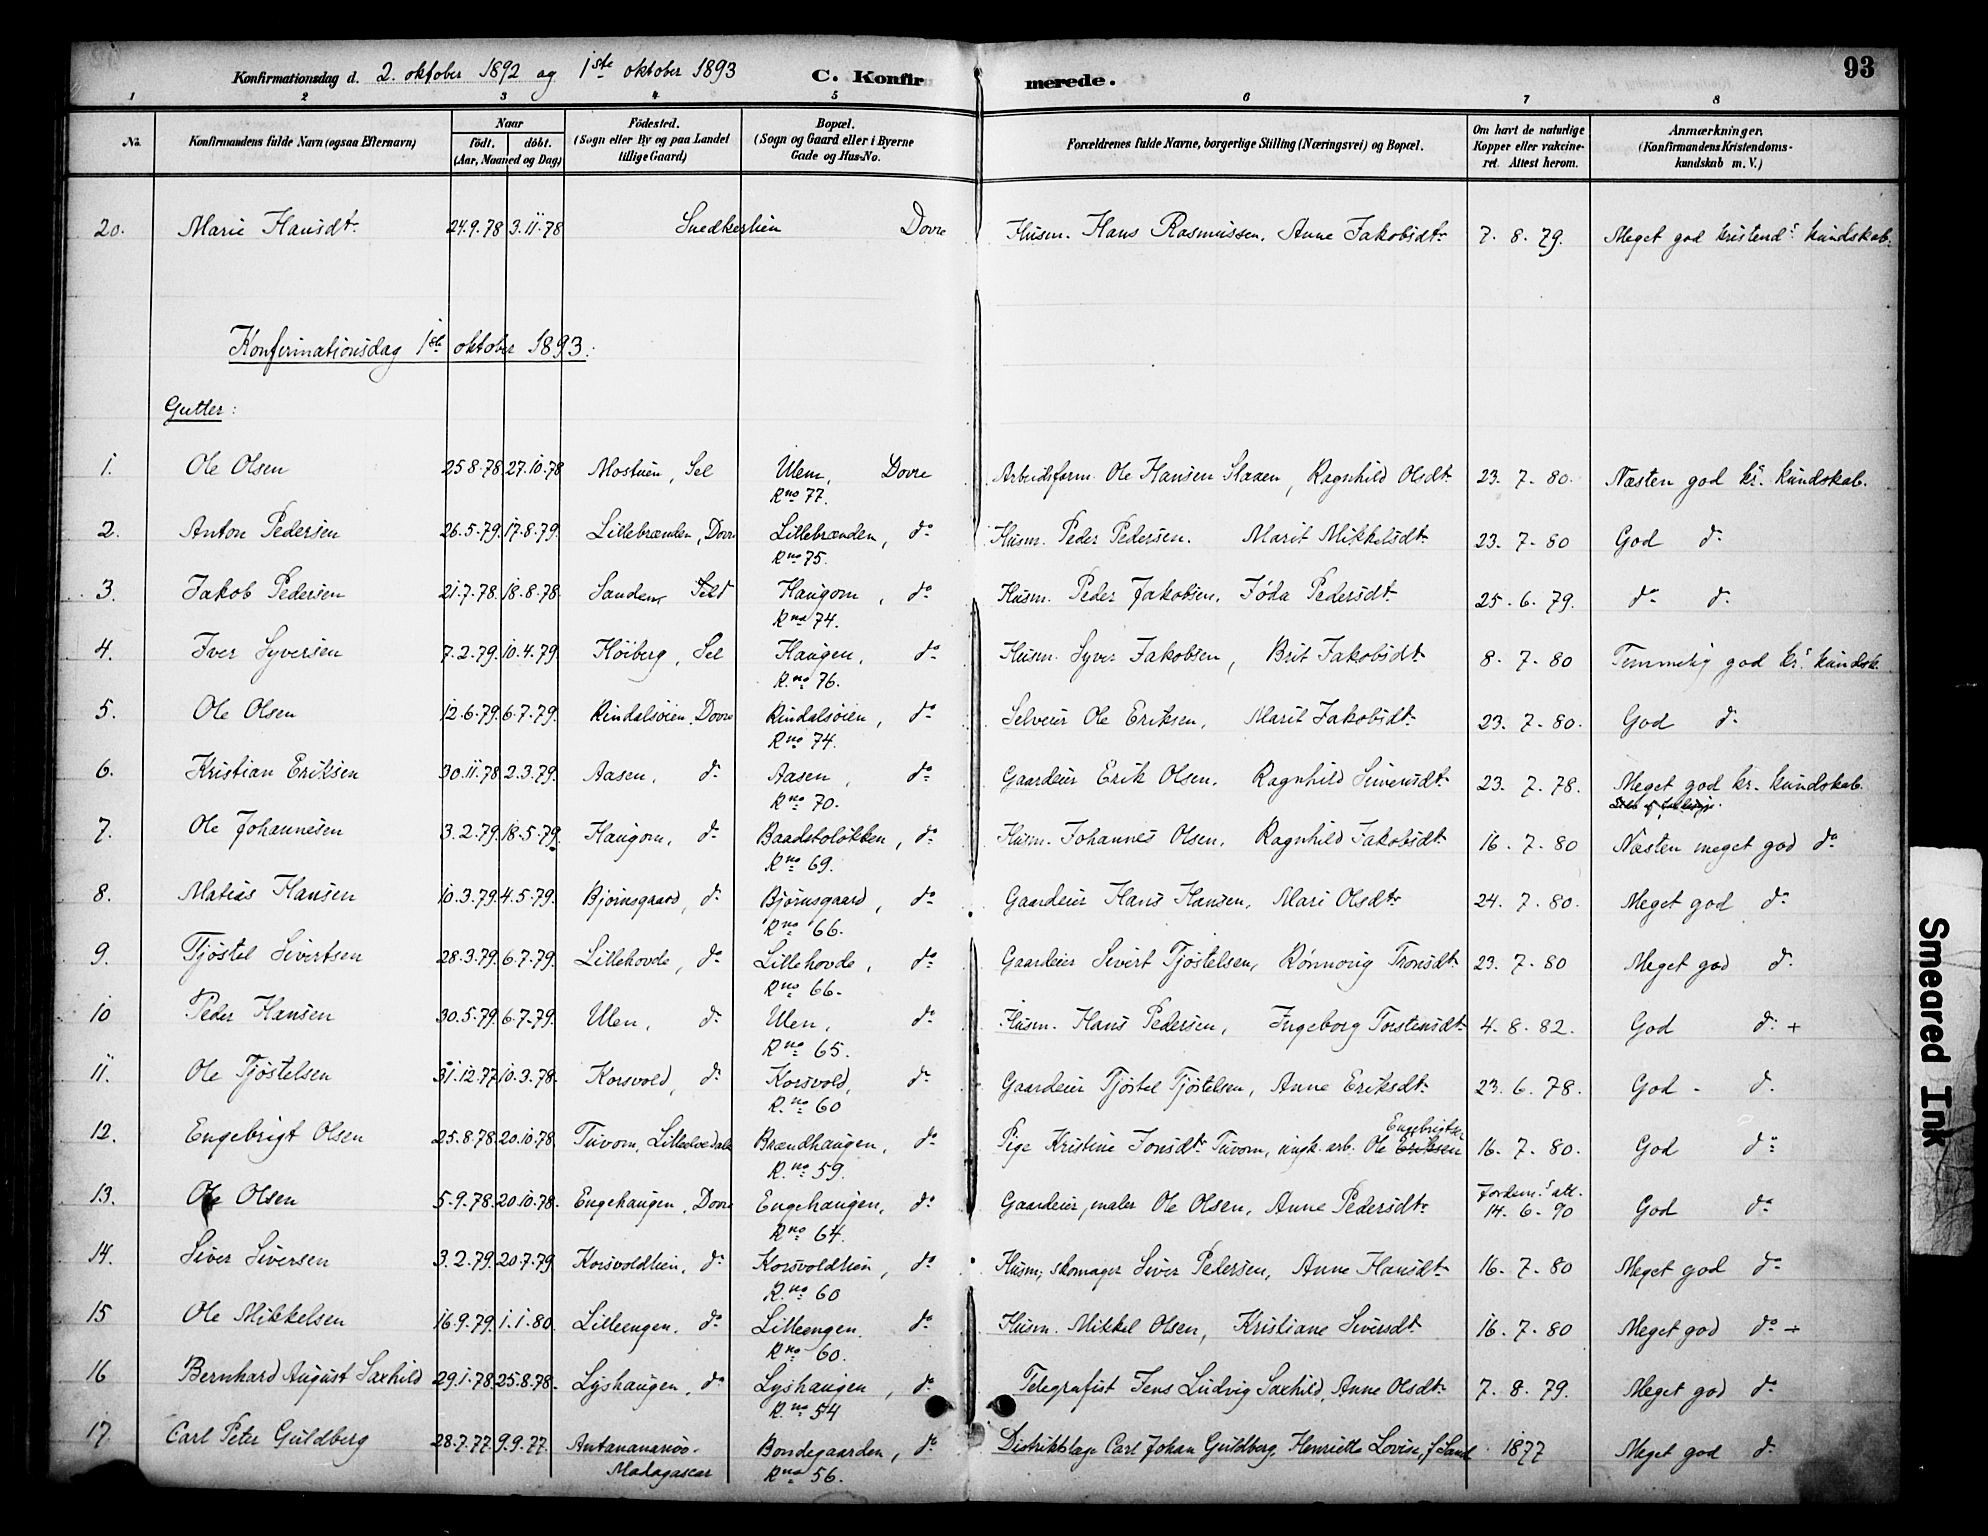 Konfirmationsdag d. 2. oktober 1892 og 1ste oktober 1893 C. Konfirmerede. 93
1 2 3 4 5 6 7 8
No. Konfirmandens fulde Navn (ogsaa Efternavn) Naar født. døbt. (Aar, Maaned og Dag) Fødested. (Sogn eller By og paa Landet tillige Gaard) Bopæl. (Sogn og Gaard eller i Byerne Gade og Hus-No. Forældrenes fulde Navne, borgerlige Stilling (Næringsvei) og Bopæl. Om havt de naturlige Kopper eller vakcineret. Attest herom. Anmærkninger. (Konfirmandens Kristendomskundskab m. V.)
20. Marie Hansdt. 24.9.78 3.11.78 Snedkerlien Dovre Husm. Hans Rasmussen, Anne Jakobsdtr 7. 8. 79. Meget god kristends kundskab.
Konfirmationsdag 1ste oktober 1893.
Gutter:
1. Ole Olsen 25.8.78 27.10.78 Mostuen, Sel Ulem, Dovre Arbeidsform. Ole Hansen Slaaen, Ragnhild Olsdt. 23. 7. 80. Næsten god kr. kundskab.
R no 77.
2. Anton Pedersen 26.5.79. 17.8.79. Lillebrænden, Dovre Lillebrænden, do Husm. Peder Pedersen. Marit Mikkelsdt. 23. 7. 80 God do
R no 75.
3. Jakob Pedersen 21.7.78. 18.8.78. Sanden, Haugom, do Husm. Peder Jakobsen, Jóda Pedersdt. 25. 6. 79. do do
R no 74.
4. Iver Syversen 7.2.79. 10.4.79. Høiberg, Sel Haugen, do Husm. Syver Jakobsen, Brit Jakobsdt. 8. 7. 80 Temmelig god kr. kundsk.
R. no 76.
5. Ole Olsen 12.6.79. 6.7.79. Rindalsøien, Dovre Rindalsøien, do Selveier Ole Eriksen, Marit Jakobsdt. 23. 7. 80. God do
R no 74.
6. Kristian Eriksen 30.11.78 2.3.79. Aasen, do Aasen, do Gaardeier Erik Olsen, Ragnhild Siversdt. 23. 7. 78. Meget god kr. kundskab.
R no 70.
7. Ole Johannesen 3.2.79. 18.5.79. Haugom, do Baadstoløkken, do Husm. Johannes Olsen, Ragnhild Jakobsdt. 16. 7. 80 Næsten meget god do
R no 69.
8. Matias Hansen 10.3.79. 4.5.79. Bjørnsgaard, do Bjørnsgaard, do Gaardeier Hans Hansen, Mari Olsdtr 24. 7. 80. Meget god do
R no 66.
9. Tjøstel Sivertsen 28.3.79. 6.7.79. Lillehovde, do Lillehovde, do Gaardeier Sivert Tjøstelsen, Rønnovig Tronsdt. 23. 7. 80 Meget god do
R no 66.
10 Peder Hansen 30.5.79. 6.7.79. Ulen, do Ulen, do Husm. Hans Pedersen, Ingeborg Torstensdt. 4. 8. 82. God do +
R no 65.
11. Ole Tjøstelsen 31.12.77 10.3.78. Korsvold, do Korsvold, do Gaardeier Tjøstel Tjøstelsen, Anne Eriksdt. 23. 6. 78. God - do
R. no 60
12. Engebrigt Olsen 25.8.78 20.10.78. Tuvom, Lilleelvedalen Brændhaugen, do Pige Kristine Jonsdt. Tuvom, ungk. arb. Ole Eriksen Engebrigtsen 16. 7. 80. God do
R. no 59.
13. Ole Olsen 5.9.78. 20.10.78. Engehaugen, Dovre Engehaugen, do Gaardeier, maler Ole Olsen, Anne Pedersdtr 14. 6. 90 God do
R no 64.
14. Siver Siversen 3.2.79. 20.7.79. Korsvoldlien, do Korsvoldlien, do Husm, skomager Siver Pedersen, Anne Hansdt. 16. 7. 80 Meget god do
R. no 60
15 Ole Mikkelsen 16.9.79. 1.1.80. Lilleengen. do Lilleengen. do Husm. Mikkel Olsen, Kristiane Siversdt. 16. 7. 80 Meget god do +
R no 60.
16 Bernhard August Saxhild 29.1.78. 25.8.78. Lyshaugen, do Lyshaugen, do Telegrafist Jens Ludvig Saxhild, Anne Olsdtr 7. 8. 79. Meget god do
R. no 54
17. Carl Peter Guldberg 28.7.77. 9.9.77. Antananarivo. Madagascar Bondegaarden, do Distriktslæge Carl Johan Guldberg, Henriette Lovise, f. Sand 1877 Meget god do
R no 56.
Smeared Ink